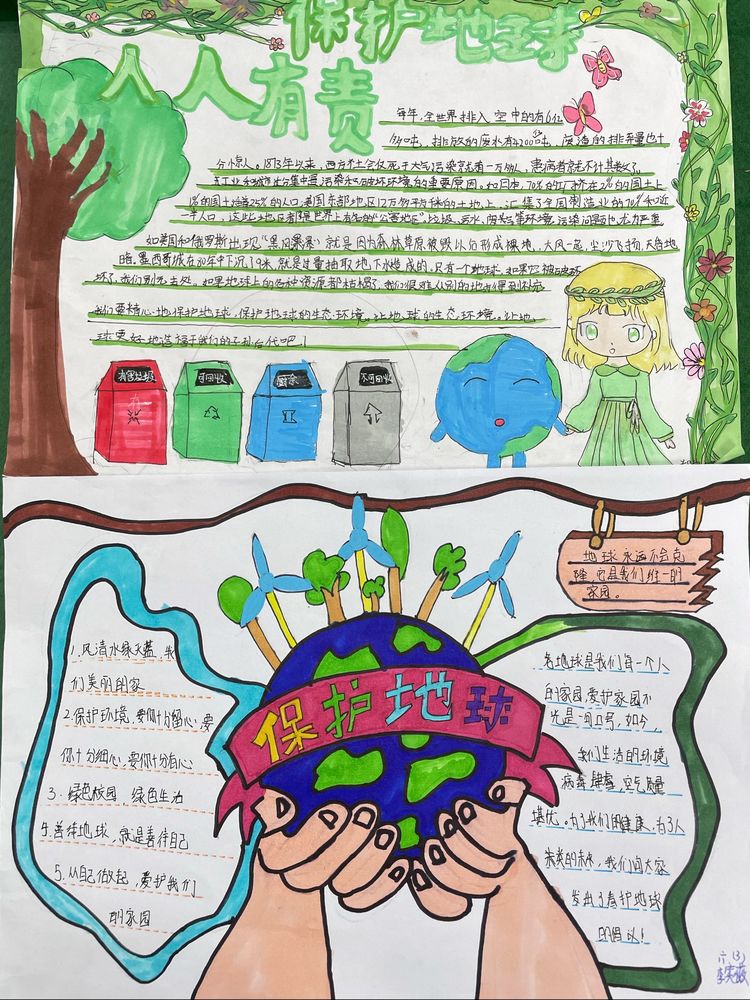 保护地球
人人有责
每年,全世界排入空中的有6亿
多吨,排放的废水有4200吨,废渣的排弃量也十
分惊人。1873年以来,西方产土会仅死于大气污染就有一万多人,患病者就不计其数了
工业和城市分集中是污染和破坏环境的重要原因。如日本,70%的工厂挤在2%的国土上
1%的国土培养25%的人口,美国东部地区12万多平方保的土地上,汇集了全国制造业的70%和近
一半人口,这些地区都是世界上有名的“公害地区”垃圾、污水、阿头等环境污染问题也尤为严重
如美国和俄罗斯出现“黑风暴暴”就是因为森林草原被毁以后形成裸地,大风一起,尘沙飞扬,天昏地
暗。墨西哥城在70年中下沉79米,就是过量抽取地下水造成的。只有一个地球,如果它被破坏
坏了,我们别无去处。如果地球上的各种资源都枯竭了,我们很难从别的地方得到
我们要精心地保护地球,保护地球的生态环境。让地球的生态环境。让地
球更好地造福于我们的子孙后代吧!
有害垃圾
可回收
厨余
不可回收
地球永远不会克
隆,它是我们唯一的
家园。
保护地球
1.风清水绿天蓝,我
们美丽的家
2.保护环境,要你十分留心,要
你十分细心,要你十分有心
3.绿色校园,绿色生活
4.善待地球,就是善待自己
5.从自己做起,爱护我们
的家园
各地球是我们每一个人
的家园,爱护家园不
光是一句口号,如今,
我们生活的环境
病毒肆虐,空气质量
堪忧。为了我们的健康,为了人
未来的未来,我们向大家
发出了爱护地球
的倡议!
六(3)